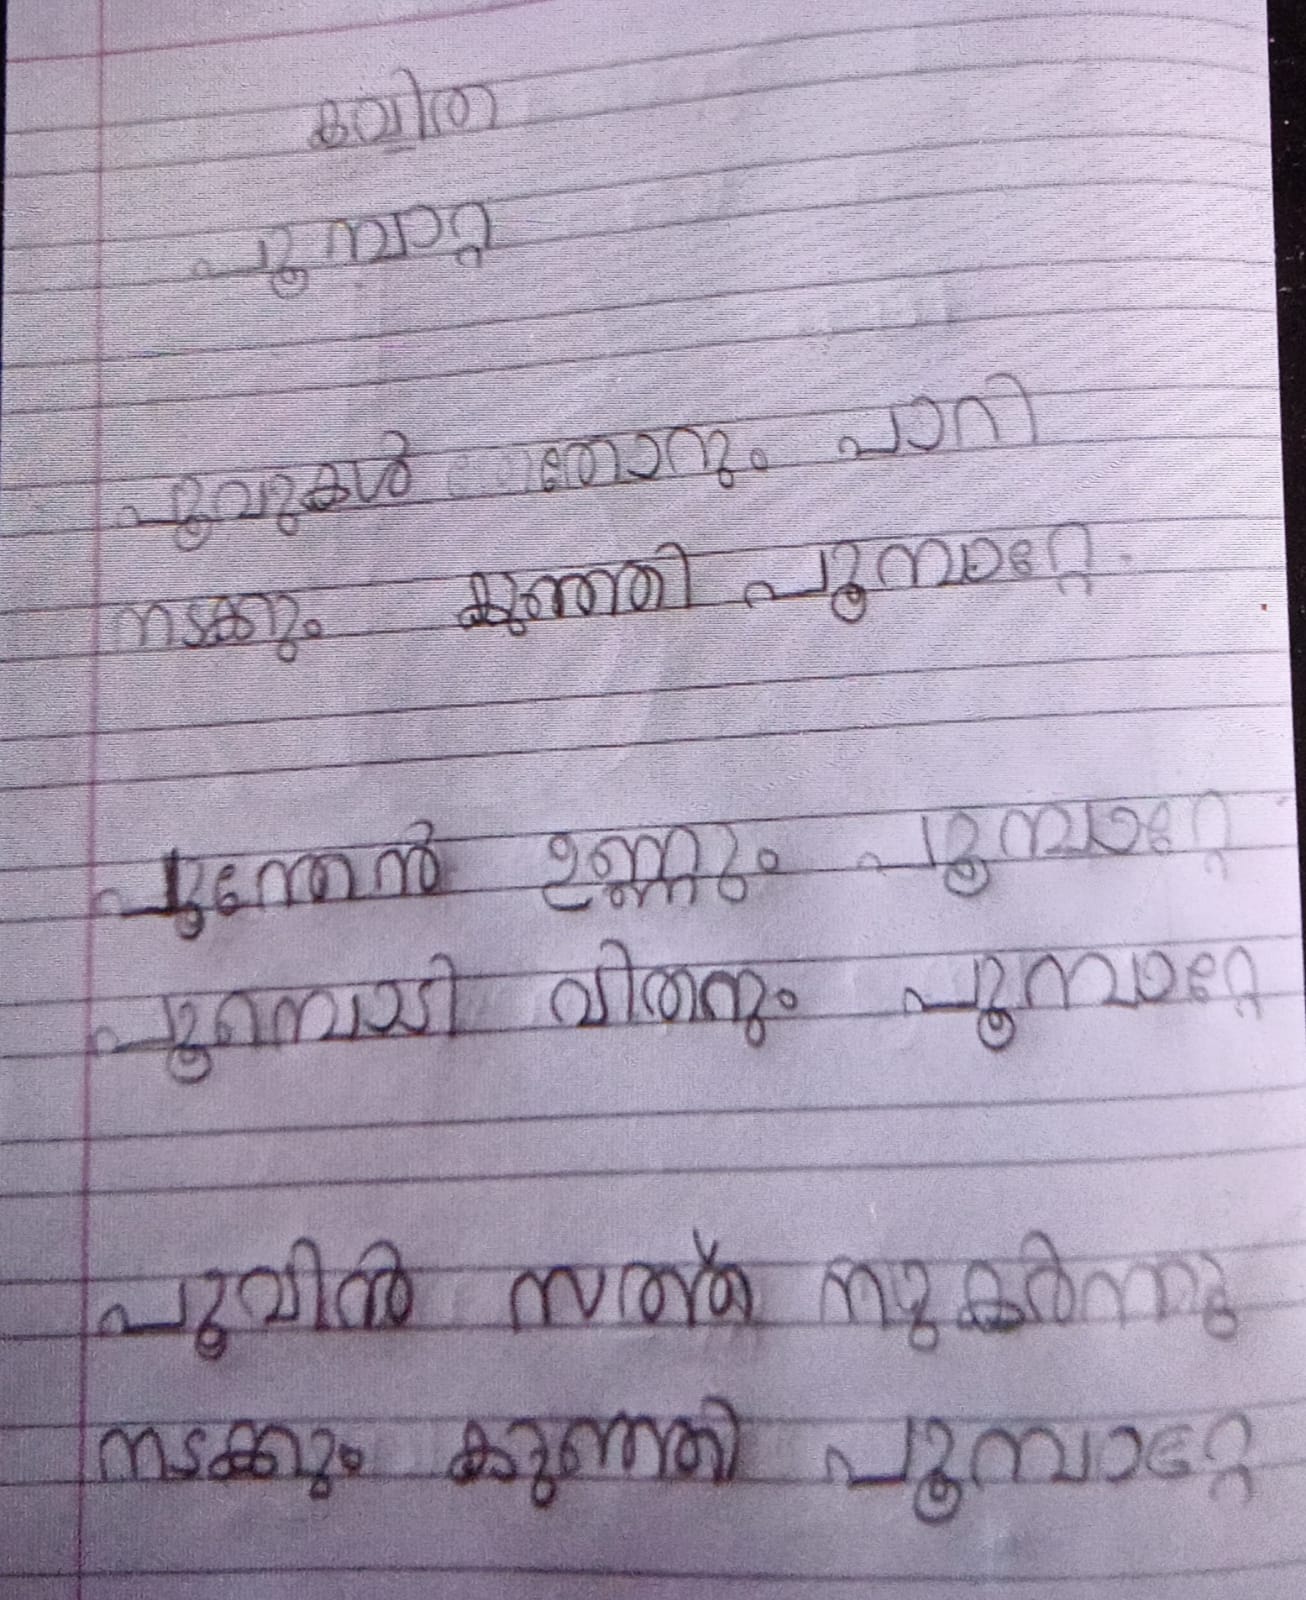 കവിത
പൂമ്പാറ്റ
പൂവുകൾ തോറും പാറി
നടക്കും കുഞ്ഞി പൂമ്പാറ്റേ.
പൂന്തേൻ ഉണ്ണും പൂമ്പാറ്റേ
പൂമ്പൊടി വിതറും പൂമ്പാറ്റേ
പൂവിൻ സത്ത് നുകർന്നു
നടക്കും കുഞ്ഞി പൂമ്പാറ്റേ